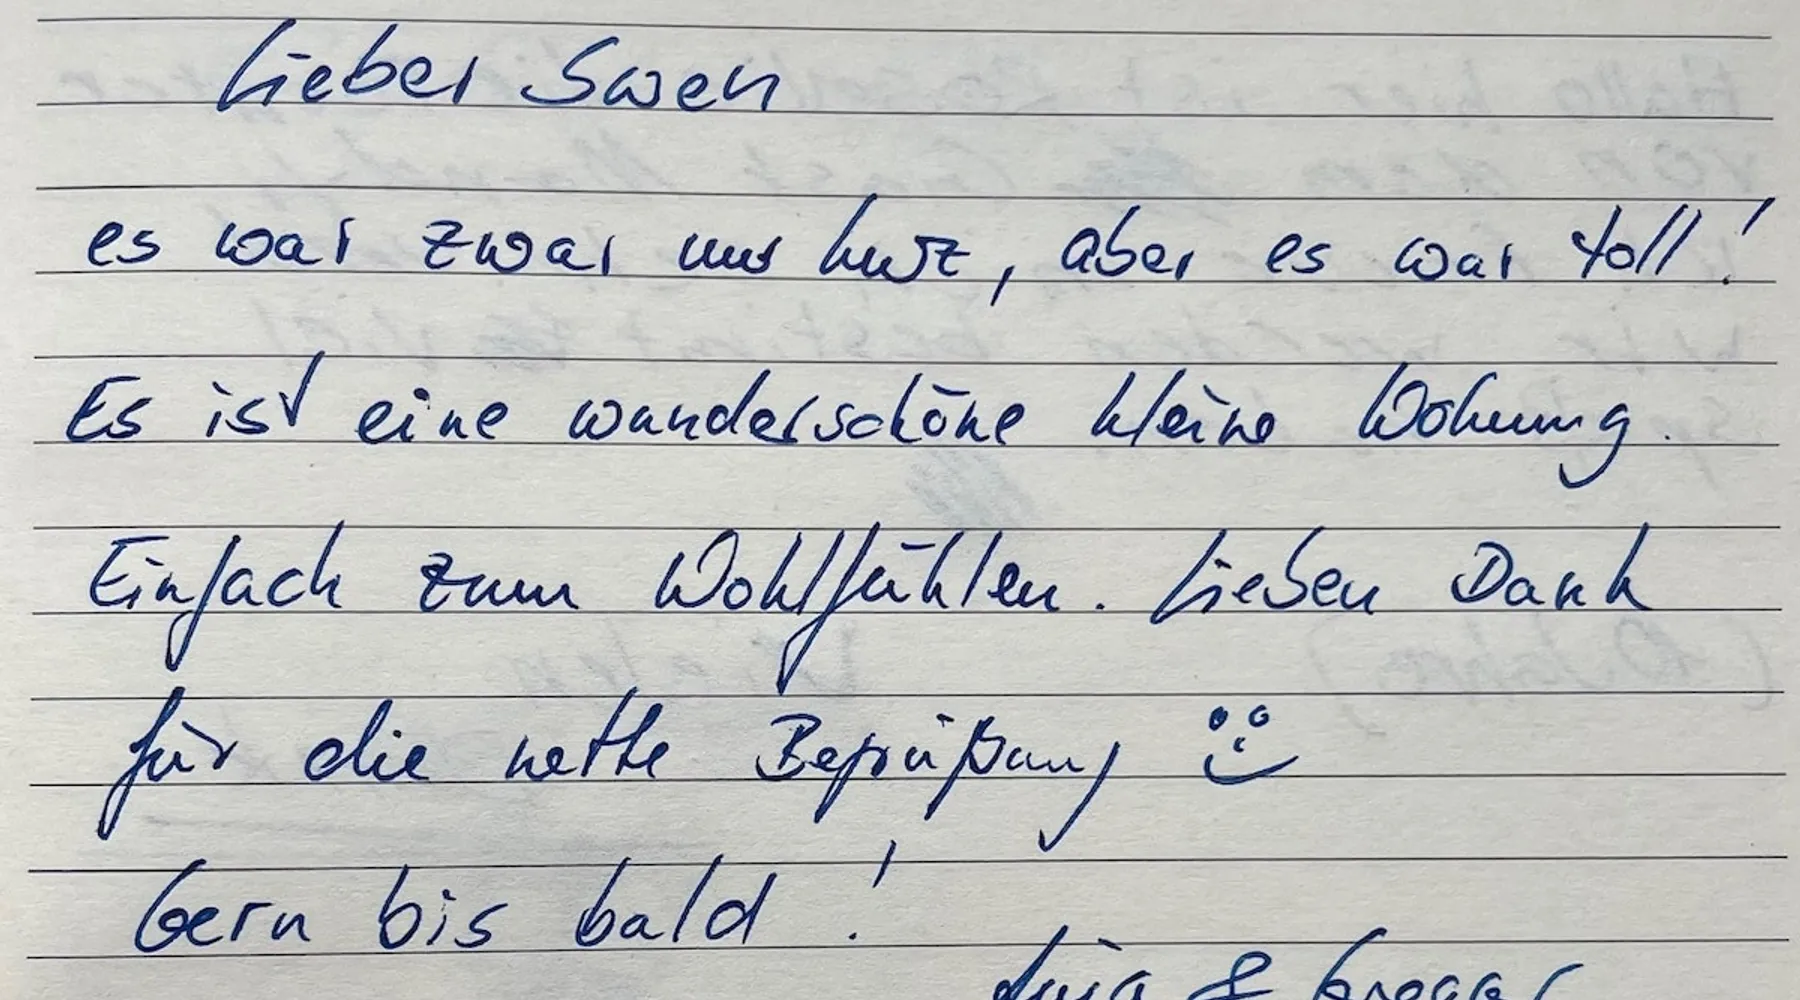 Lieber Swen
es war zwar nur kurz, aber es war toll!
Es ist eine wunderschöne kleine Wohnung.
Einfach zum Wohlfühlen. Lieben Dank
für die nette Begrüßung
Gern bis bald!
&